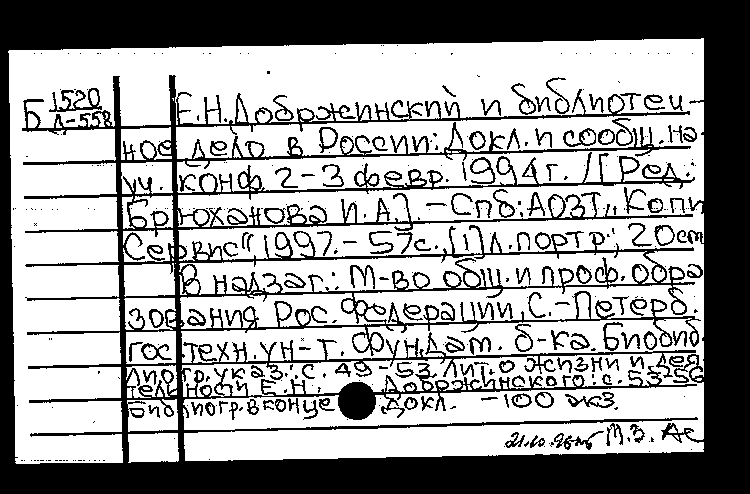 Б 1520
Д-558
Е.Н. Добржинский и библиотеч-
ное дело в России: Докл. и сообщ. на
уч. конф. 2-3 февр. 1994 г. / [Ред.:
Брюханова И.А.]. - Спб: АОЗТ „Копи
Сервис", 1997. - 57 с., [1] л. портр.; 20 см
В надзаг.: М-во общ. и проф. обра
зования Рос. Федерации, С.-Петерб.
гос техн. ун-т. Фундам. б-ка. Библиб
лиогр. указ.: с. 49-53. Лит. о жизни и дея
тельности Е.Н. Добржинского: с. 53-56
Библиогр. в конце докл. - 100 экз.
М.З. Ас